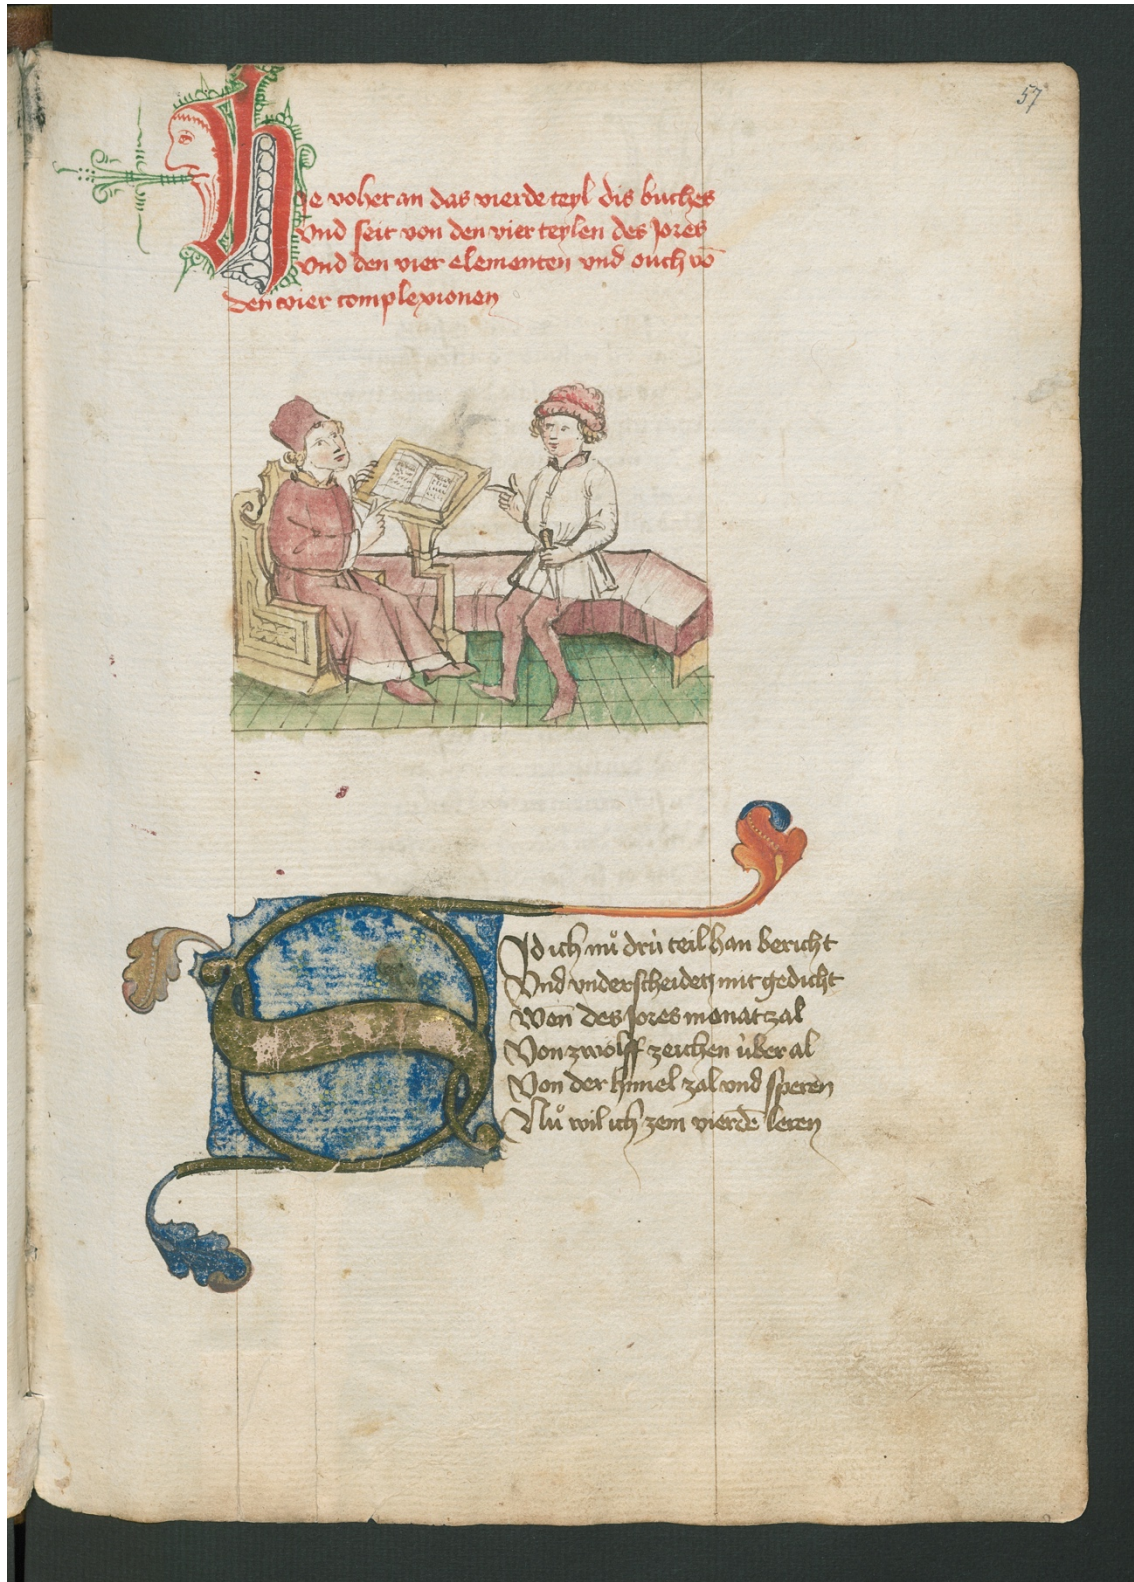 57
Hie vohet an das vierde teyl dis buches
Vnd seit von den vier teylen des Jores
Vnd den vier elementen vnd ouch vō
den vier complexionen
Sid ich nuͦ drü teil han bericht
Vnd vnderscheiden mit gedicht
Wen des Jores monat zal
Von zwoͤlff zeichen über al
Von der himel zal vnd speren
Nuͦ wil ich zem vierdē leren